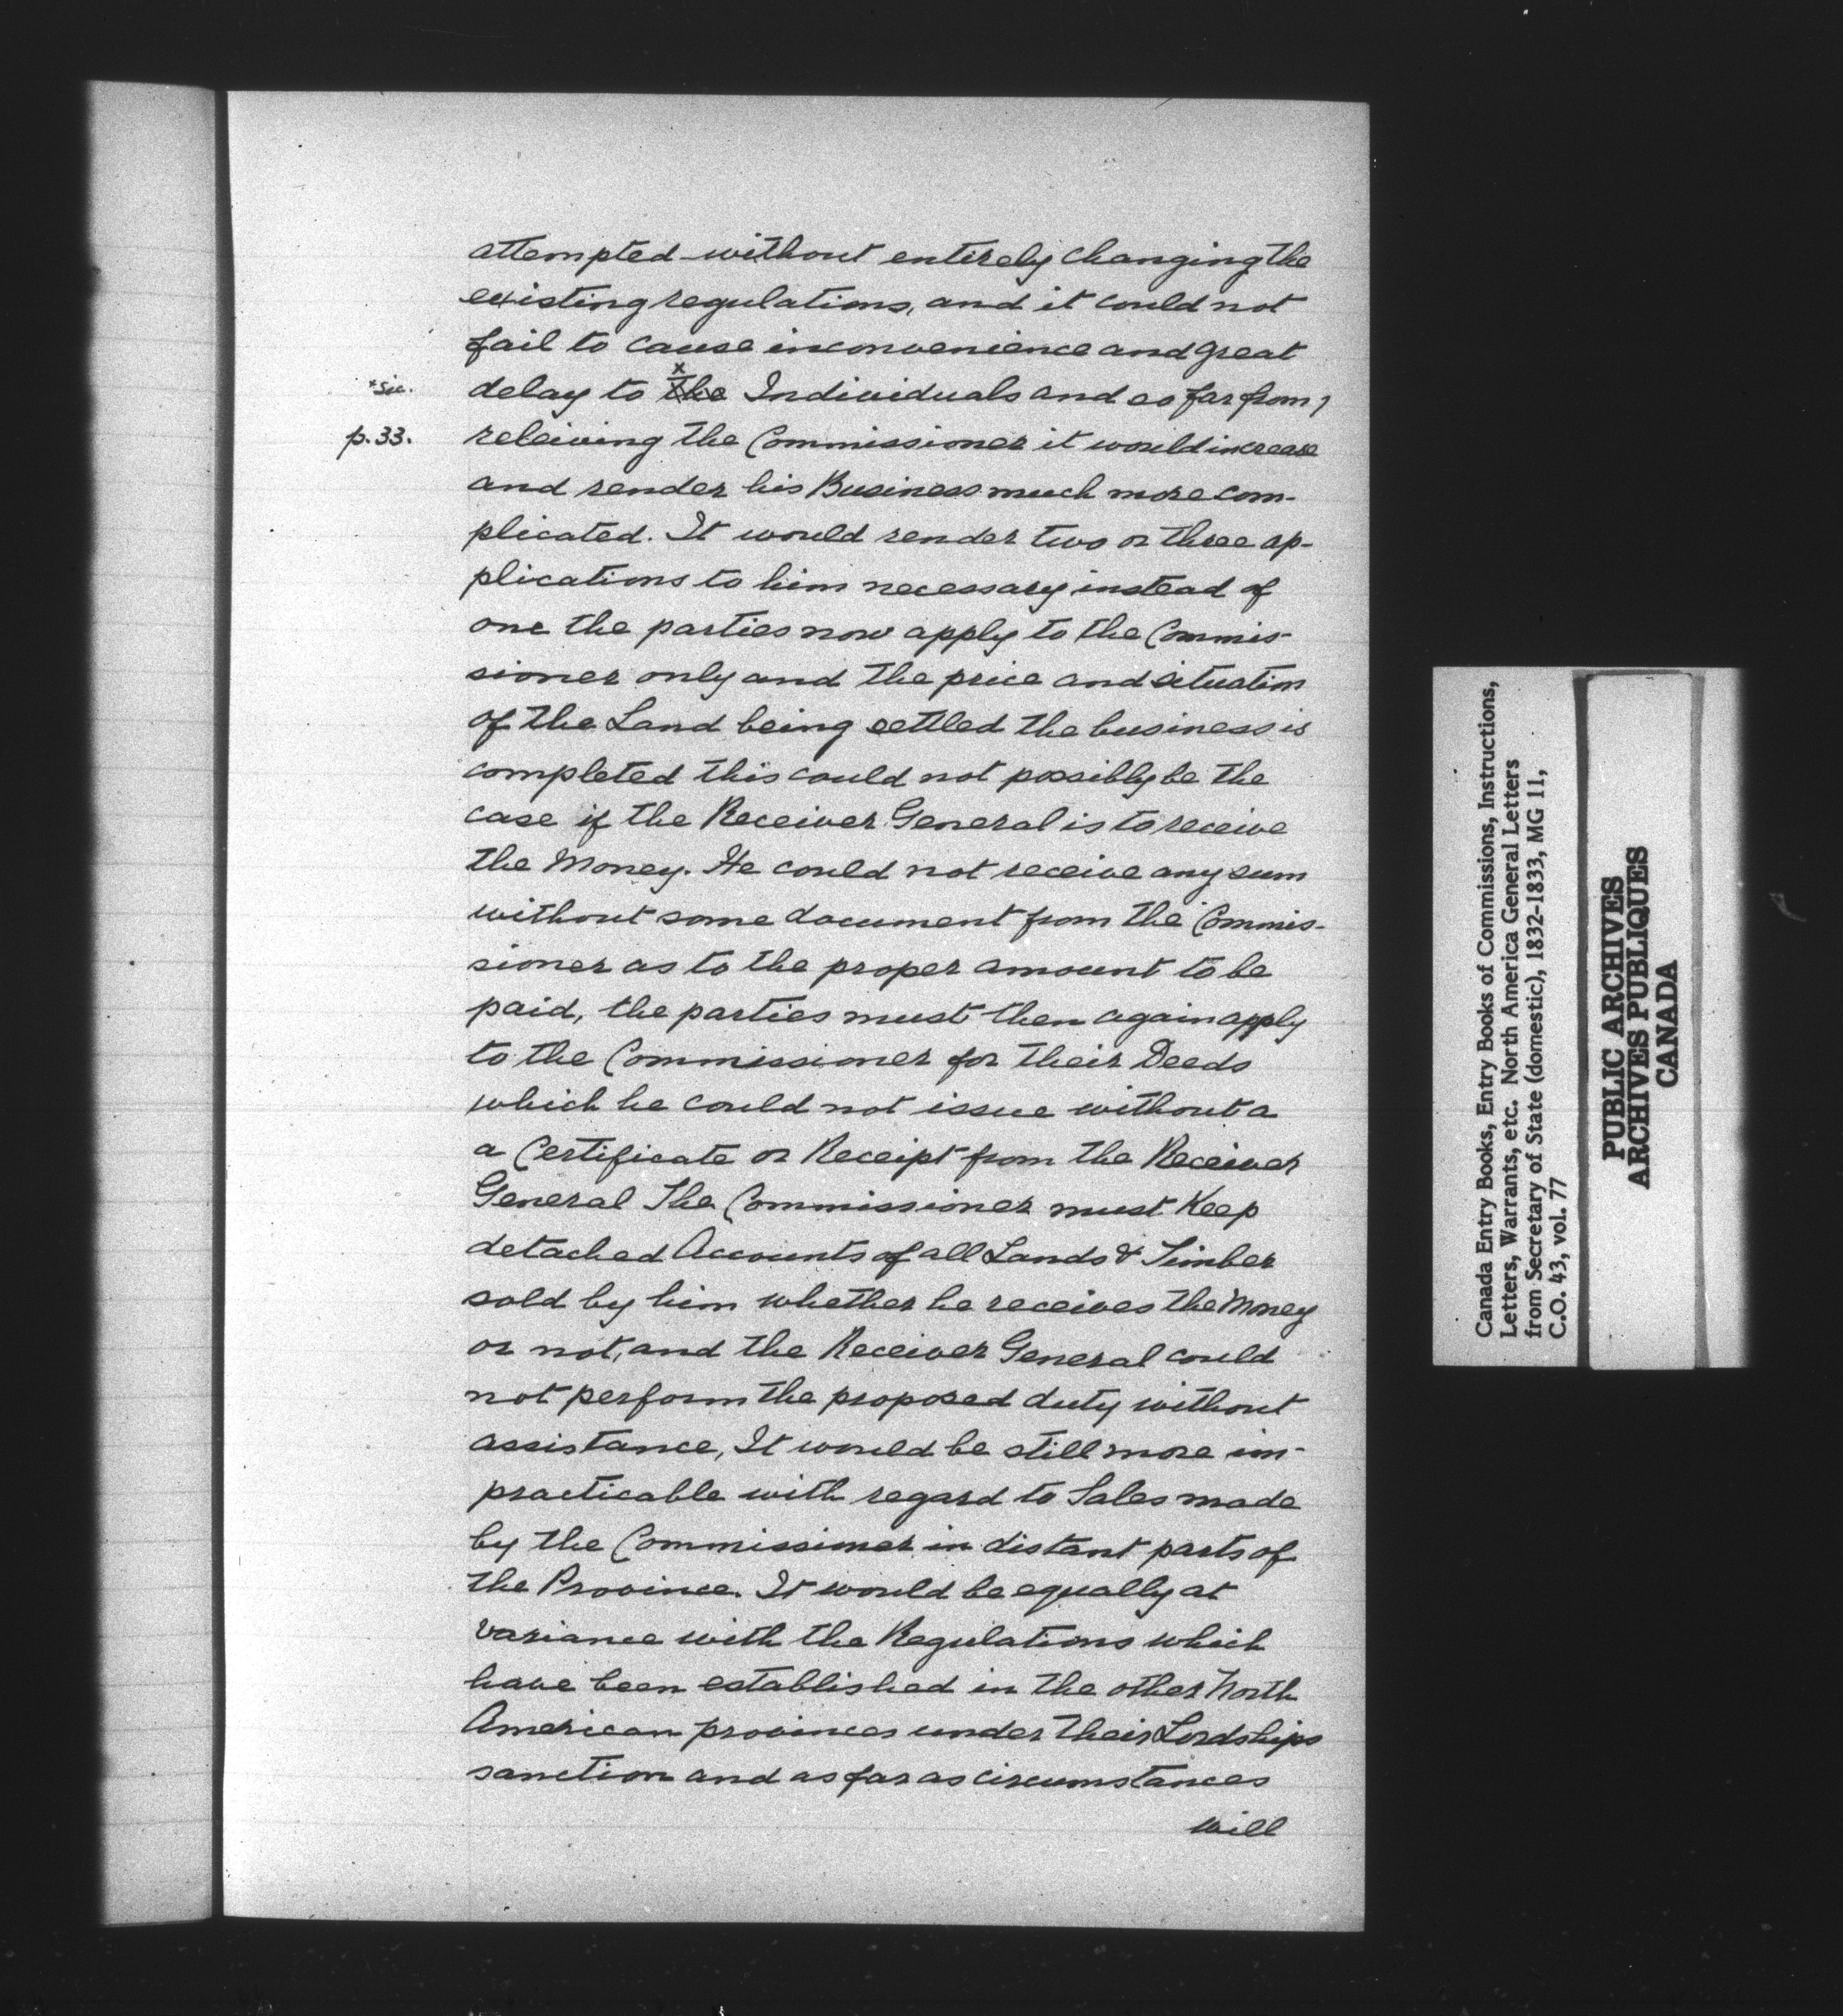 attempted without entirely changing the
existing regulations, and it could not
fail to cause inconvenience and great
x
*sic.
delay to the Individuals and so far from
p. 33.
releiving the Commissioner it would increase
and render his Business much more com-
plicated. It would render two or three ap-
plications to him necessary instead of
one the parties now apply to the Commis-
sioner only and the price and situation
of the Land being settled the business is
completed this could not possibly be the
case if the Receiver General is to receive
the Money. He could not receive any sum
without some document from the Commis-
sioner as to the proper amount to be
paid, the parties must then again apply
to the Commissioner for their Deeds
which he could not issue without a
a Certificate or Receipt from the Receiver
General The Commissioner must Keep
detached Accounts of all Lands & Timber
sold by him whether he receives the Money
or not, and the Receiver General could
not perform the proposed duty without
assistance, It would be still more im-
practicable with regard to Sales made
by the Commissioner in distant parts of
the Province. It would be equally at
variance with the Regulations which
have been established in the other North
American provinces under their Lordships
sanction and as far as circumstances
will
Canada Entry Books, Entry Books of Commissions, Instructions,
Letters, Warrants, etc. North America General Letters
from Secretary of State (domestic), 1832-1833, MG 11,
C.O. 43, vol. 77
PUBLIC ARCHIVES
ARCHIVES PUBLIQUES
CANADA